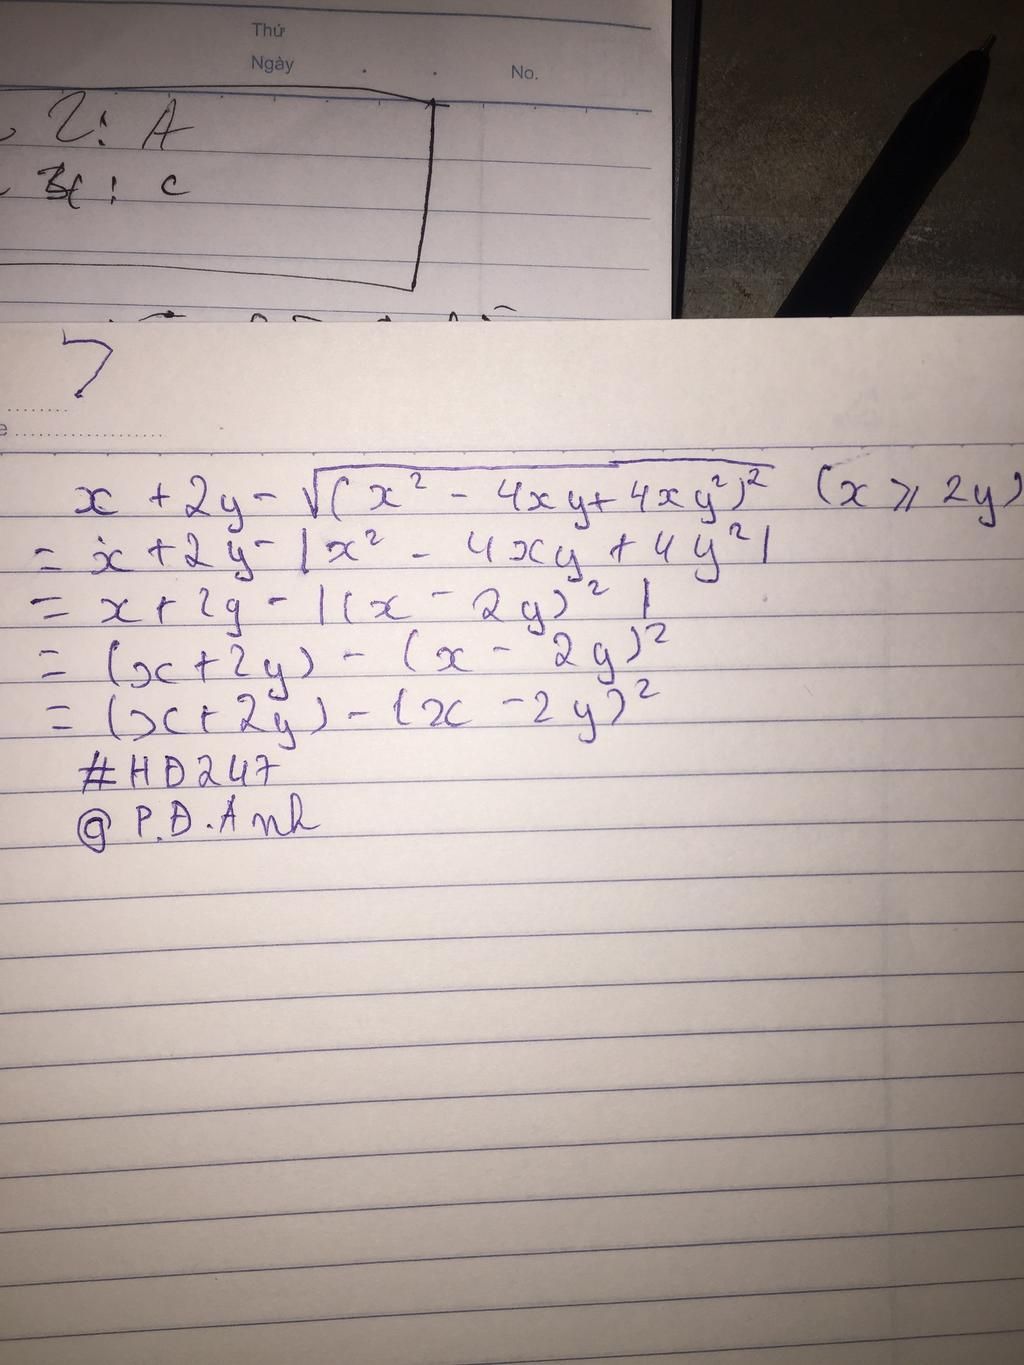 Thứ
Ngày
No.
2: A
: c
7
x + 2y - √(x² - 4xy + 4xy²)² (x ⩾ 2y)
= x + 2y - |x² - 4xy + 4y²|
= x + 2y - |(x - 2y)²|
= (x + 2y) - (x - 2y)²
= (x + 2y) - (x - 2y)²
#HD247
@ P.Đ.Anh